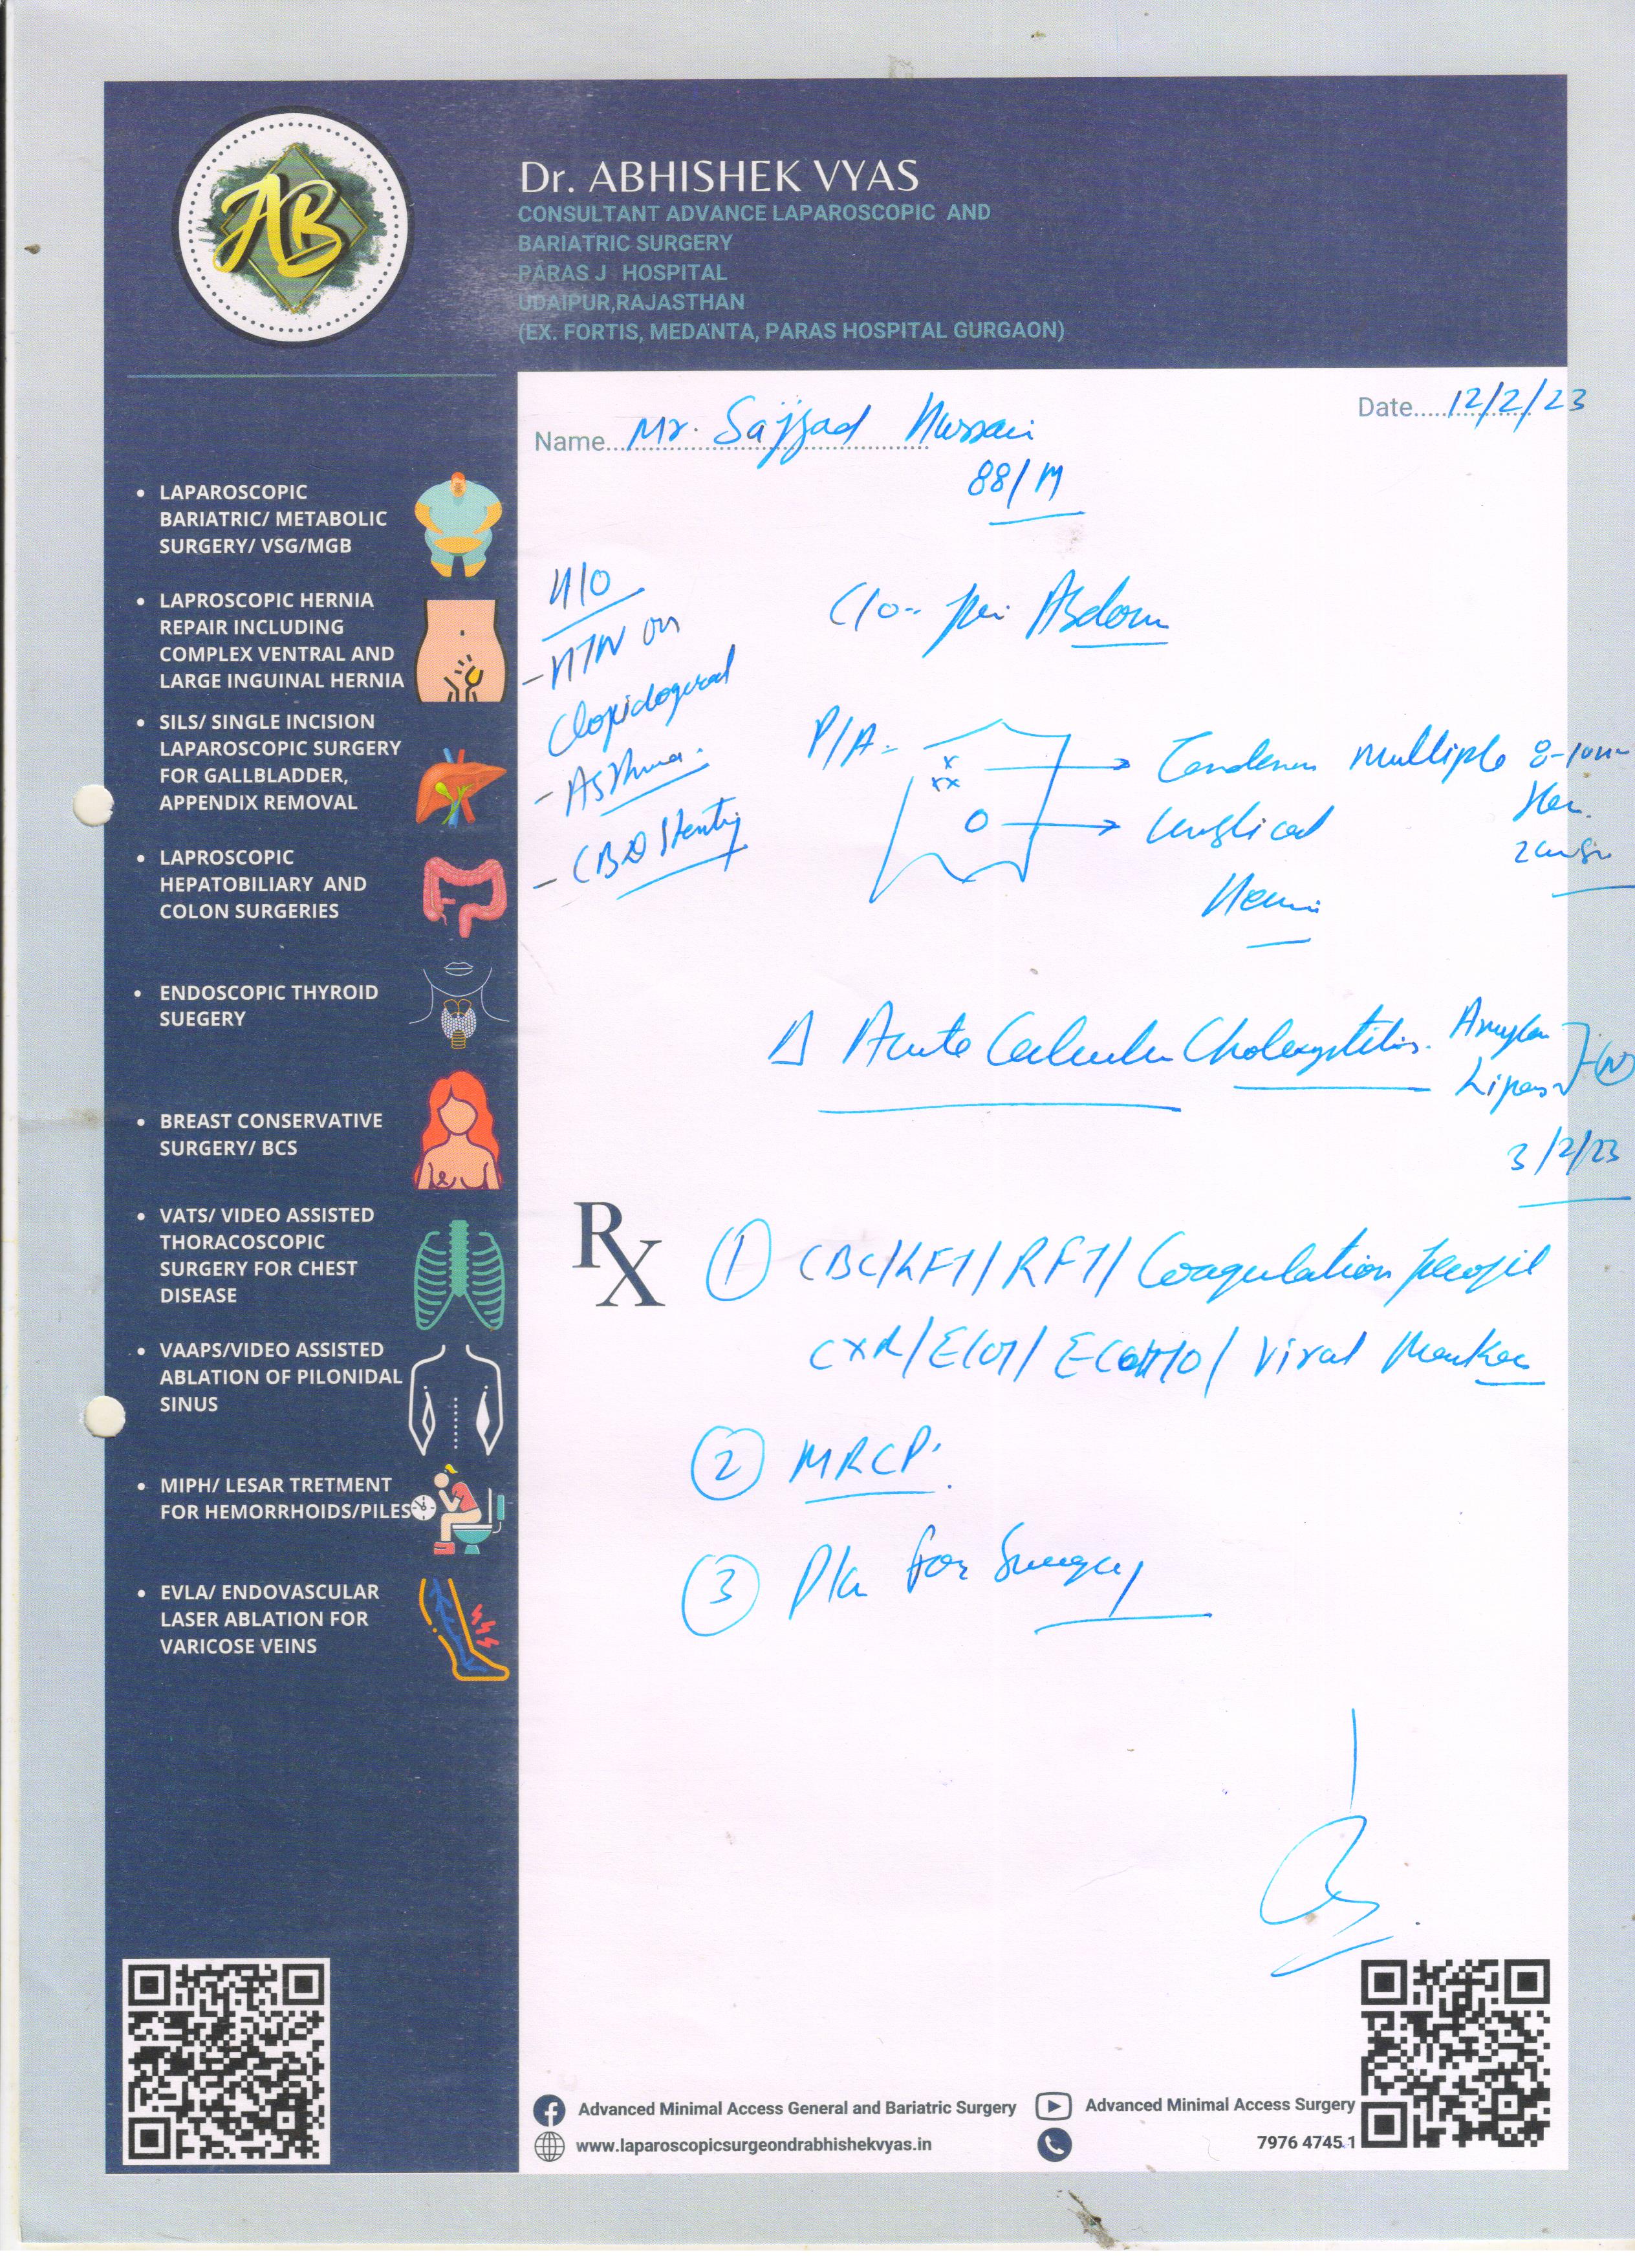 AB
Dr. ABHISHEK VYAS
CONSULTANT ADVANCE LAPAROSCOPIC AND
BARIATRIC SURGERY
PARAS J HOSPITAL
UDAIPUR,RAJASTHAN
(EX. FORTIS, MEDANTA, PARAS HOSPITAL GURGAON)
Date..... 12/2/23
Name... Mr. Sajjad Hussain
88/M
• LAPAROSCOPIC
BARIATRIC/ METABOLIC
SURGERY/ VSG/MGB
• LAPROSCOPIC HERNIA
REPAIR INCLUDING
COMPLEX VENTRAL AND
LARGE INGUINAL HERNIA
• SILS/ SINGLE INCISION
LAPAROSCOPIC SURGERY
FOR GALLBLADDER,
APPENDIX REMOVAL
• LAPROSCOPIC
HEPATOBILIARY AND
COLON SURGERIES
• ENDOSCOPIC THYROID
SUEGERY
• BREAST CONSERVATIVE
SURGERY/ BCS
• VATS/ VIDEO ASSISTED
THORACOSCOPIC
SURGERY FOR CHEST
DISEASE
• VAAPS/VIDEO ASSISTED
ABLATION OF PILONIDAL
SINUS
• MIPH/ LESAR TRETMENT
FOR HEMORRHOIDS/PILES
• EVLA/ ENDOVASCULAR
LASER ABLATION FOR
VARICOSE VEINS
H/O
- HTN on
Clopidogrel
- Asthma
- CBD Stenting
C/O - Pain Abdomen
P/A -
Multiple 8-10mm
Umbilical
Hernia
Δ Acute Calculus Cholecystitis.
Amylase
Lipase
(N)
3/2/23
Rx
① CBC/LFT/RFT/ Coagulation profile
CXR/ECG/ ECHO/ Viral Marker
② MRCP.
③ Plan for Surgery
Advanced Minimal Access General and Bariatric Surgery
Advanced Minimal Access Surgery
www.laparoscopicsurgeondrabhishekvyas.in
7976 4745 1